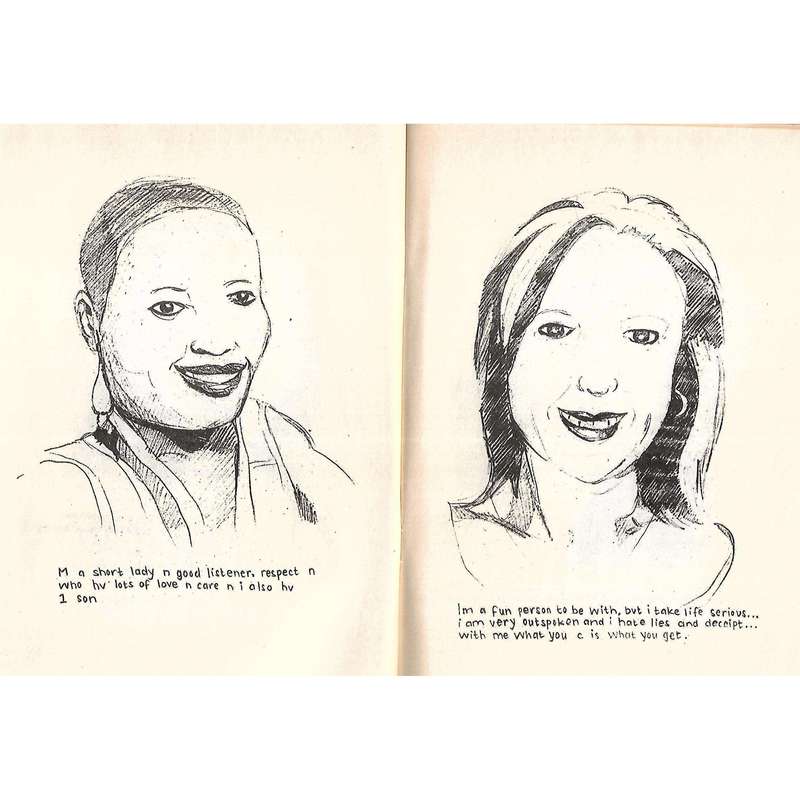 M a short lady n good listener. respect n
who hv lots of love n care n i also hv
1 son
Im a fun person to be with, but i take life serious...
i am very outspoken and i hate lies and deceipt...
with me what you c is what you get.